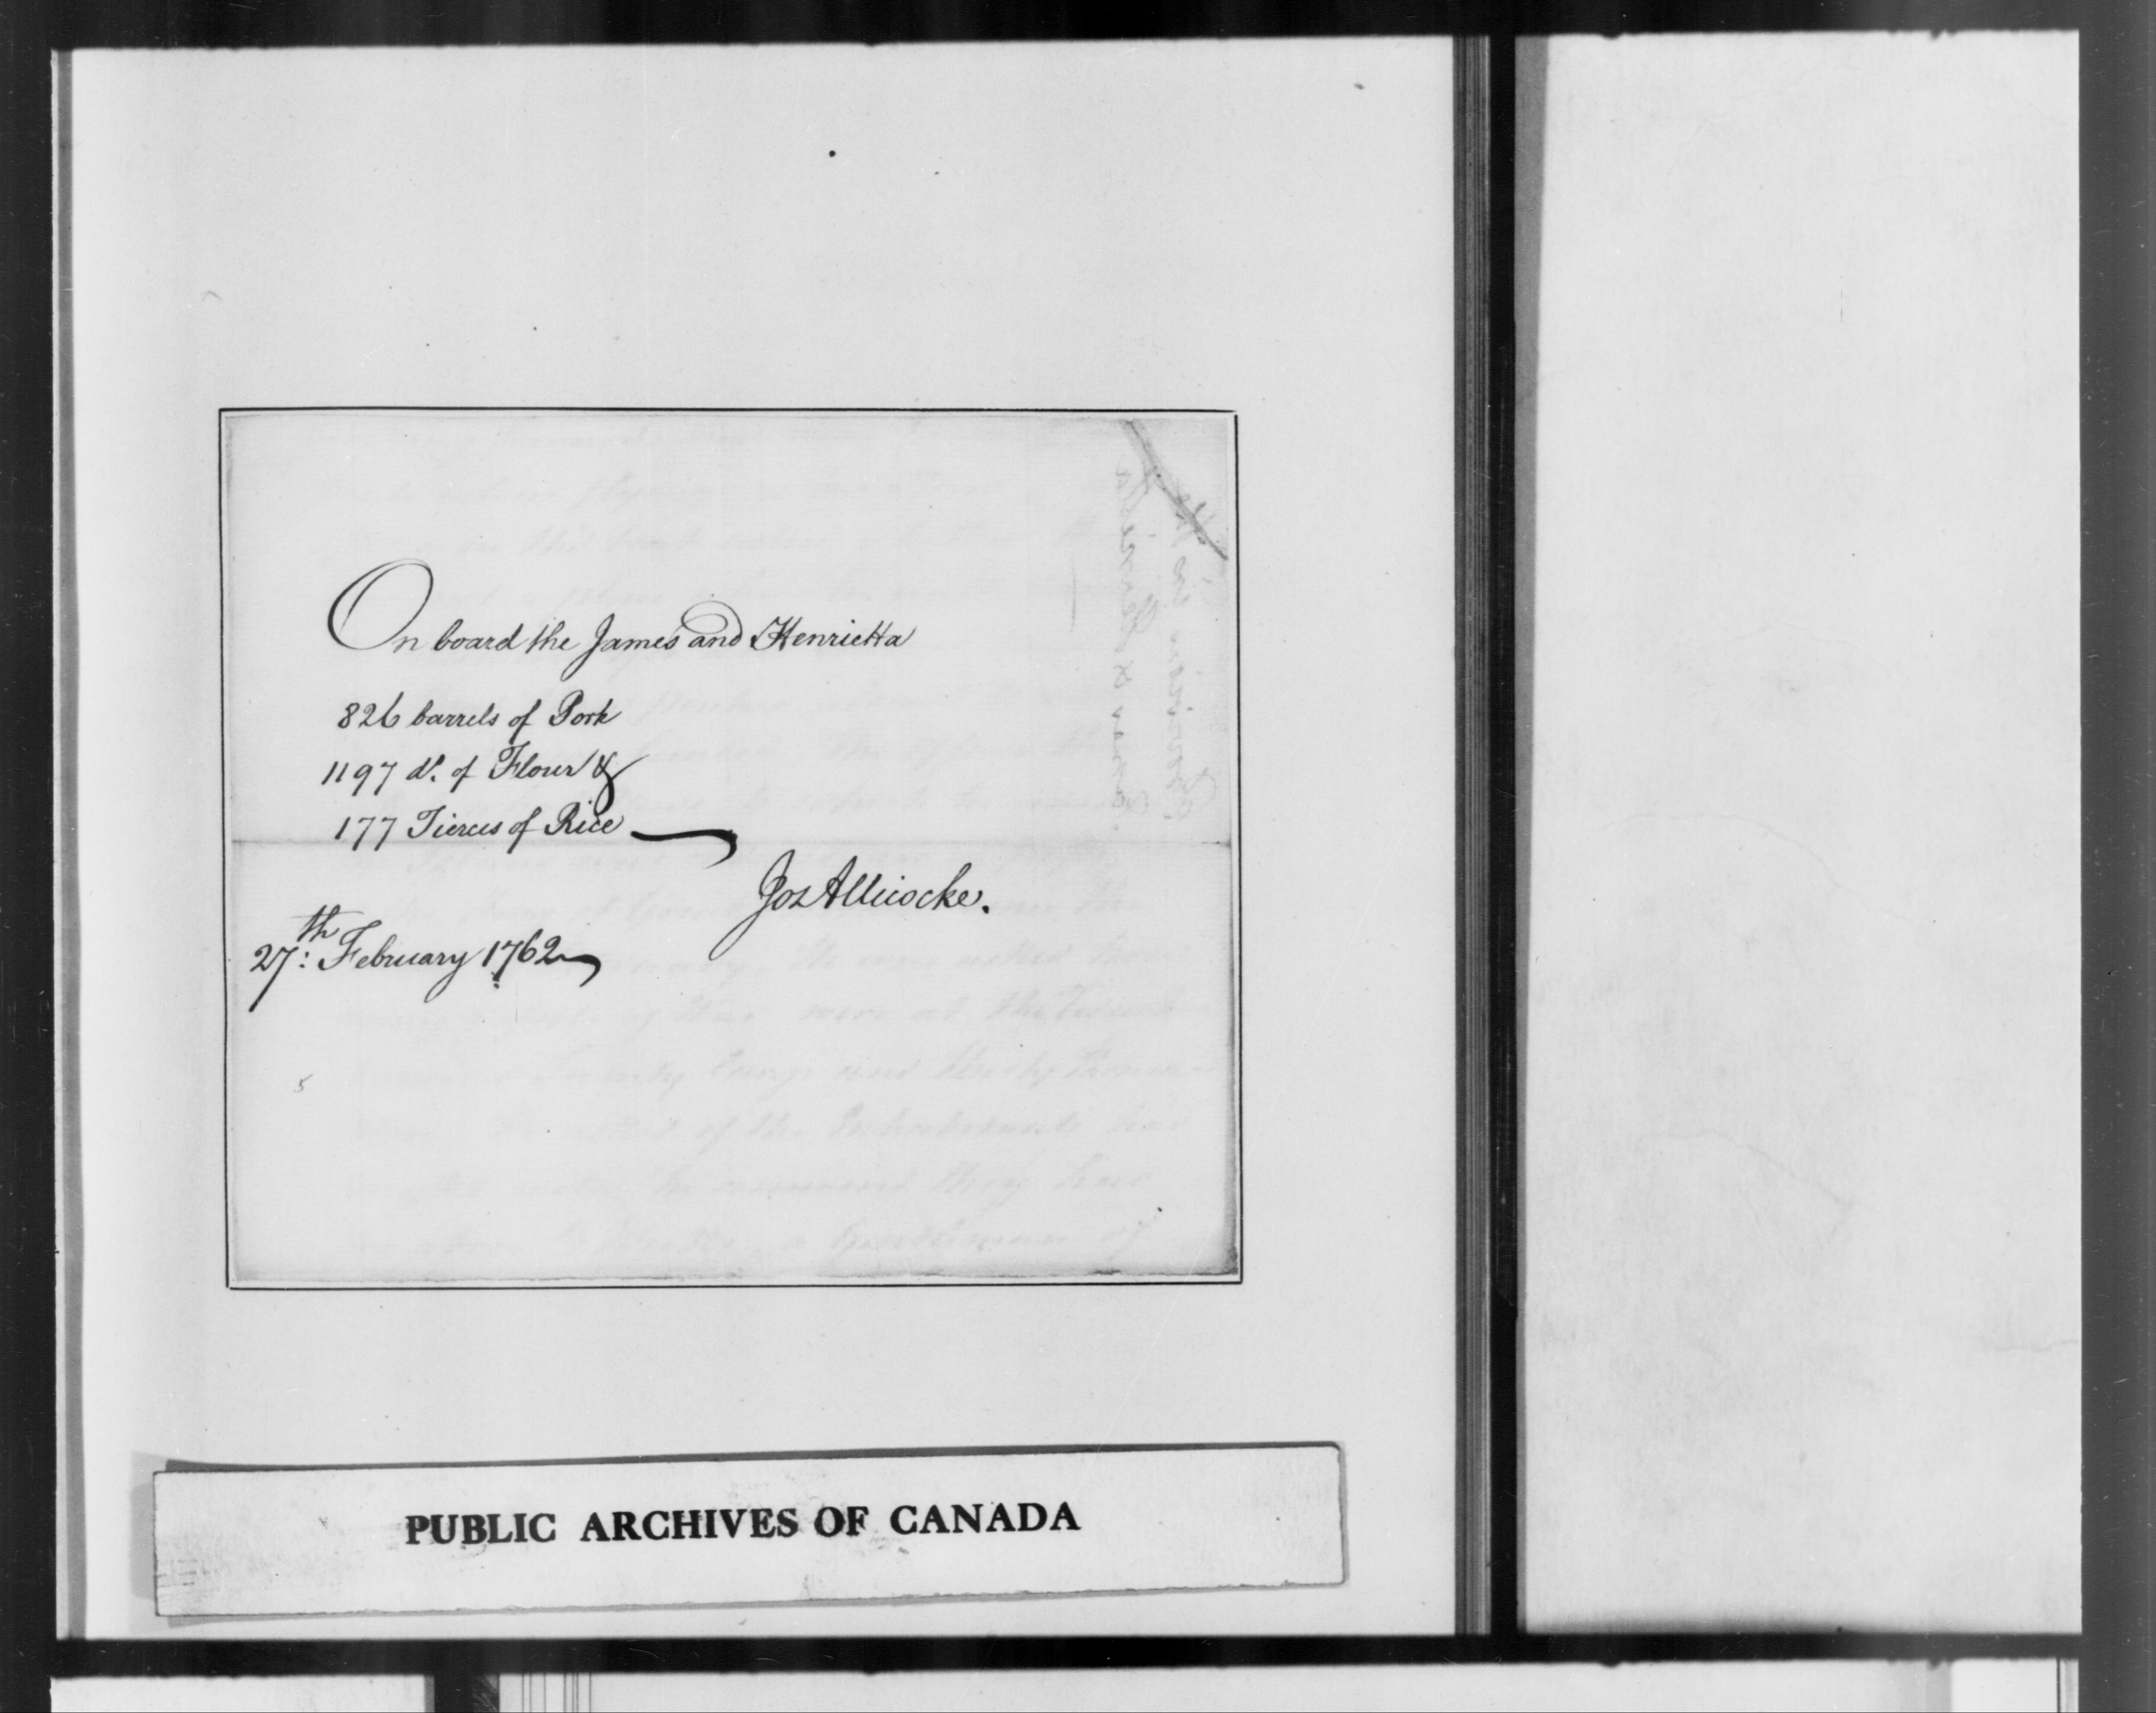 On board the James and Henrietta
826 barrels of Pork
1197 do. of Flour &
177 Tierces of Rice
Jos Allicocke.
27th: February 1762
PUBLIC ARCHIVES OF CANADA